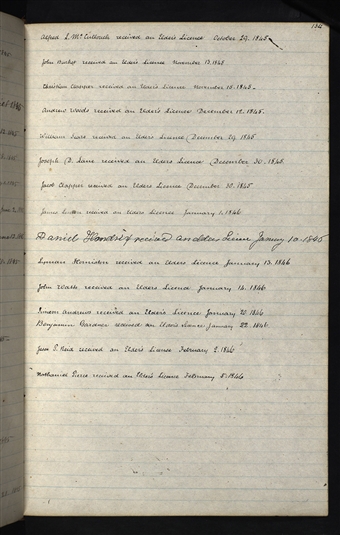 132
Alfred L. McCullouch received an Elder's Licence October 29. 1845
John received an Elder's Licence November 13. 1845
Christian received an Elder's Licence November 15. 1845.
Andrew Woods received an Elder's Licence December 12. 1845.
William Sears received an Elders Licence December 29. 1845
Joseph D. Lane received an Elders Licence December 30. 1845.
Jacob Clapper received an Elder's Licence December 30. 1845
James received an Elders Licence January 1. 1846
Daniel Hendrix received an elders Licence January 10 - 1846
Lyman received an Elders Licence January 13. 1846
John received an Elder's Licence January 14. 1846
Simeon Andrews received an Elder's Licence January 20. 1846
Benjamin Gardner received an Elder's Licence January 22. 1846.
Reid received an Elder's Licence February 2. 1846
Nathaniel received an Elder's Licence February 5. 1846